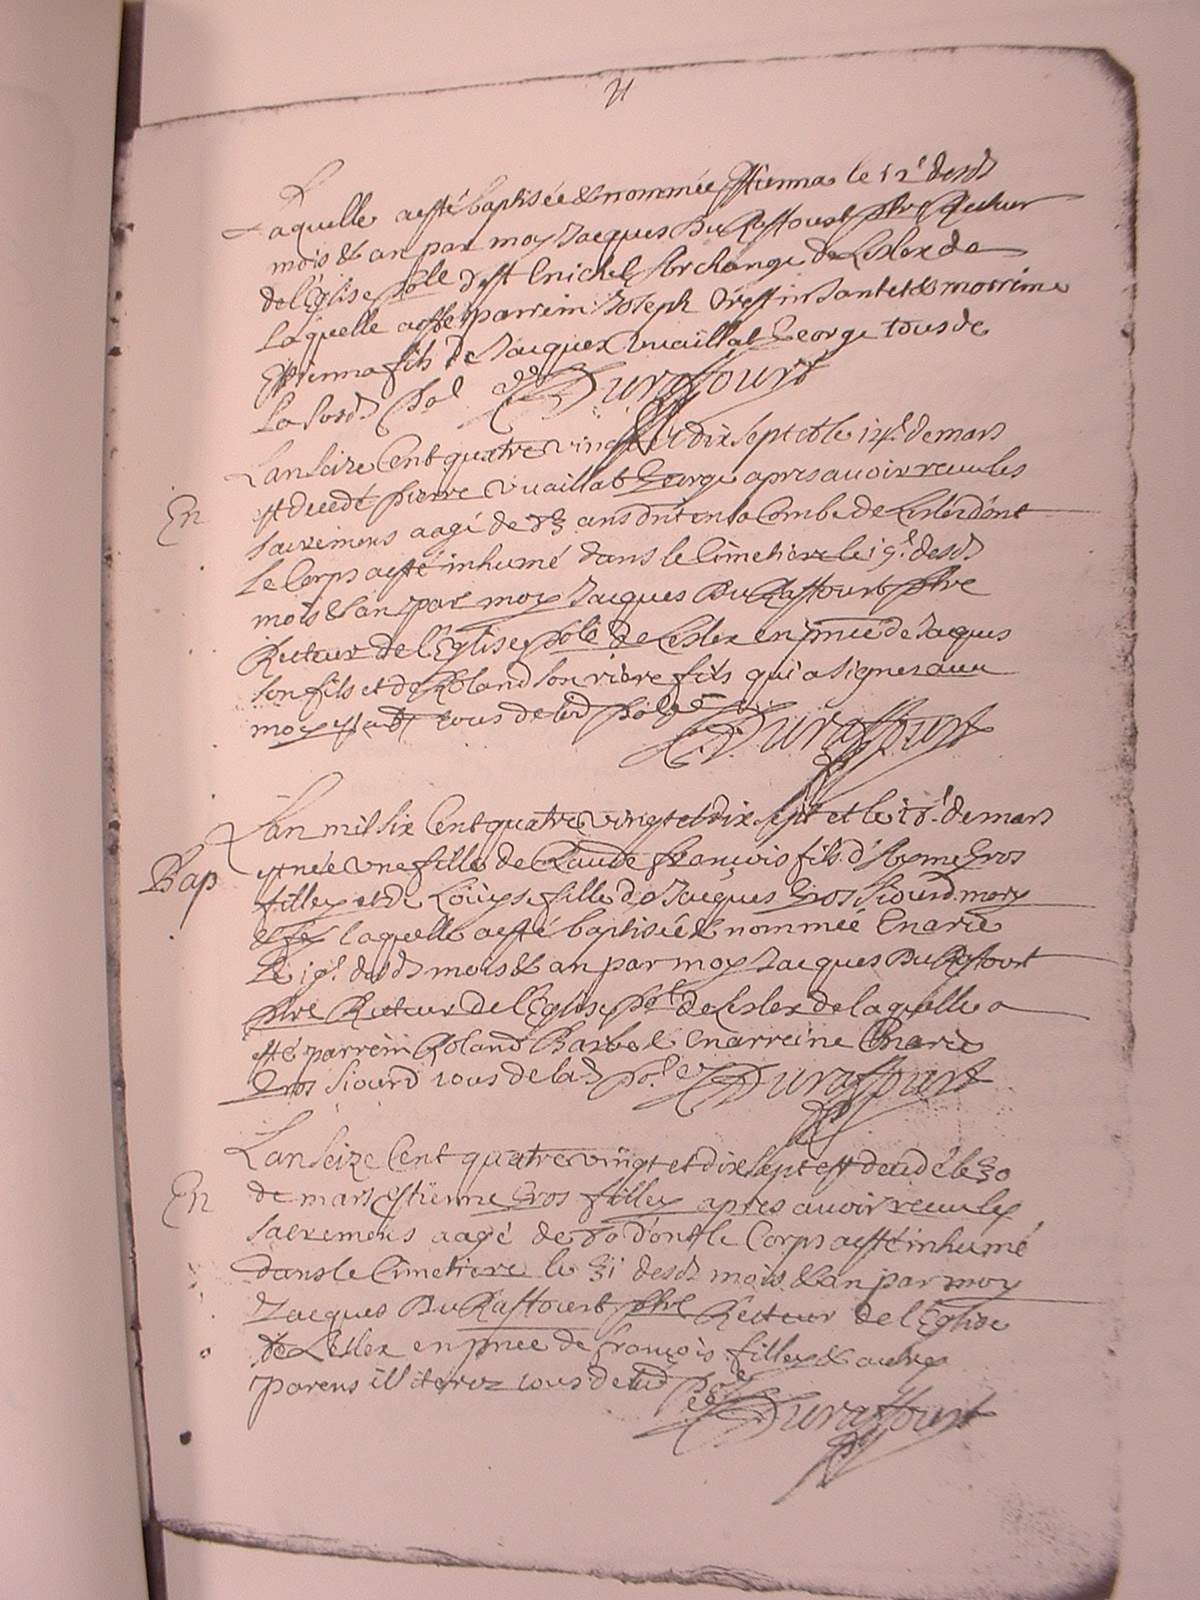 21
Laquelle a esté baptisée & nommée Estienna le 12e desds
mois & an par moy Jacques Du Raffourt pbre Recteur
de l'Eglise pôlle d'st Michel Archange de Leslex de
Laquelle a esté parrein Joseph & marrine
Estienna fils de Jacques Vuaillat George tous de
La susd. pâl Duraffourt
Lan seize Cent quatre vingt et dix sept et le 14e de mars
En
est decedé pierre Vuaillat George apres avoir receu les
sacremens aagé de 83 ans en la Combe de Leslex dont
Le Corps a esté inhumé dans le Cimetiere le 15e desds
mois & an par moy Jacques Du Raffourt pbre
Recteur de l'Eglise pôle de Leslex en pnce de Jaques
son fils et de Roland son fils qui a signe avec
moy tous de lad pâle Duraffourt
Lan mil six Cent quatre vingt et dix sept et le 18e de mars
Bap
est née une fille de Claude françois fils d'Ayme Gros
filley et de Loüyse fille de Jacques Gros Siourd mary
& fe laquelle a esté baptisée & nommée Marie
Le 19e desds mois & an par moy Jacques Du Raffourt
pbre Recteur de l'Eglise pâle de Leslex de laquelle a
esté parrein Roland Barbe & marreine Marie
Gros Siourd tous de lad pâle Duraffourt
Lan seize Cent quatre vingt et dix sept est decedé le 30
En
de mars Estienne Gros filley apres avoir receu les
sacremens aagé de 80 dont le Corps a esté inhumé
dans le Cimetiere le 31 desds mois & an par moy
Jacques Du Raffourt pbre Recteur de l'Eglise
de Leslex en pnce de françois filley & autres
parens illiterez tous de lad pâle Duraffourt